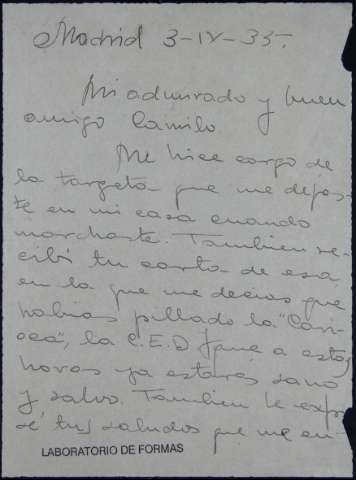 Madrid 3-IV-35.
Mi admirado y buen
amigo Camilo.
Me hice cargo de
la targeta que me dejas-
te en mi casa cuando
marchaste. Tambien re-
cibí tu carta de esa
en la que me decias que
habias pillado la "Cari-
oca", la C.E.D que a estas
horas ya estarás sano
y salvo. Tambien le expr
sé tus saludos que me en-
LABORATORIO DE FORMAS